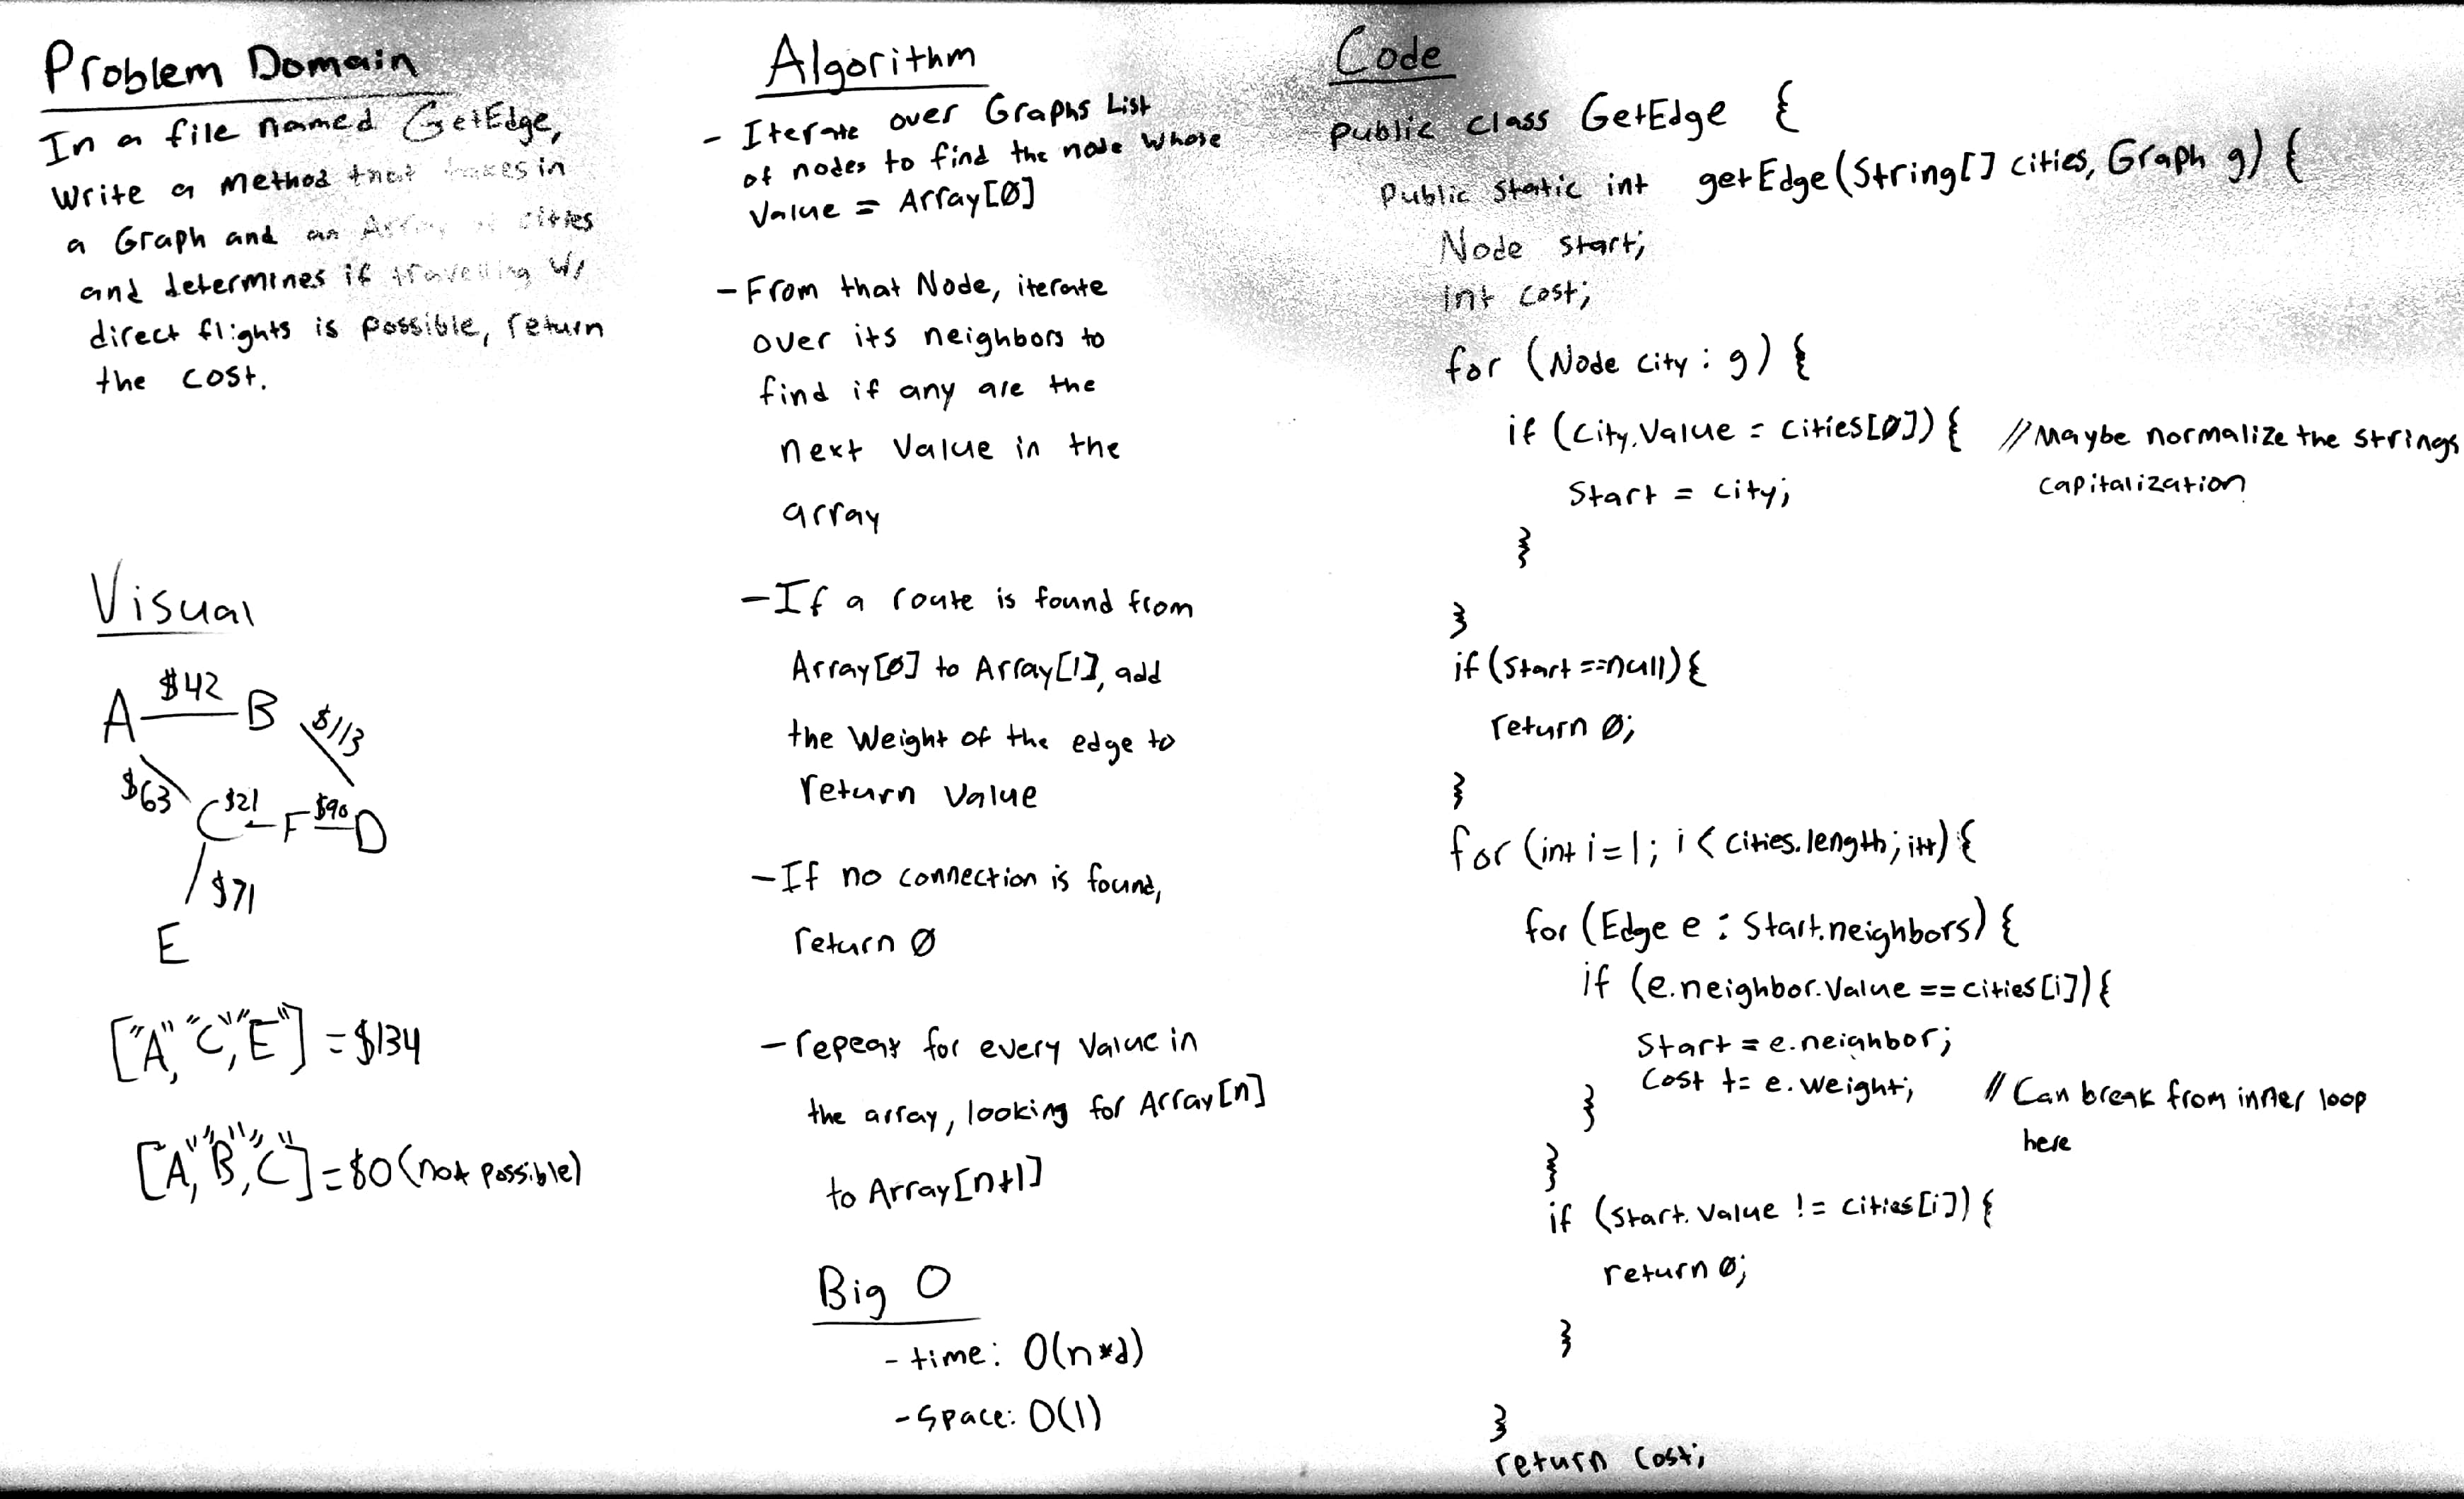 Problem Domain
In a file named GetEdge,
write a method that takes in
a Graph and an Array of cities
and determines if travelling w/
direct flights is possible, return
the cost.
Visual
A $42 B
$113
$63
C $21 F $90 D
$71
E
["A", "C", "E"] = $134
["A", "B", "C"] = $0 (not possible)
Algorithm
- Iterate over Graphs List
of nodes to find the node whose
Value = Array[0]
- From that Node, iterate
over its neighbors to
find if any are the
next value in the
array
- If a route is found from
Array[0] to Array[1], add
the weight of the edge to
return value
- If no connection is found,
return 0
- repeat for every value in
the array, looking for Array[n]
to Array[n+1]
Big O
- time: O(n*d)
- Space: O(1)
Code
public class GetEdge {
public static int getEdge(String[] cities, Graph g) {
Node start;
int cost;
for (Node city : g) {
if (city.value = cities[0]) { // Maybe normalize the strings
capitalization
Start = city;
}
}
if (start == null) {
return 0;
}
for (int i = 1; i < cities.length; i++) {
for (Edge e : Start.neighbors) {
if (e.neighbor.value == cities[i]) {
Start = e.neighbor;
Cost += e.weight; // Can break from inner loop
here
}
}
if (start.value != cities[i]) {
return 0;
}
}
return cost;